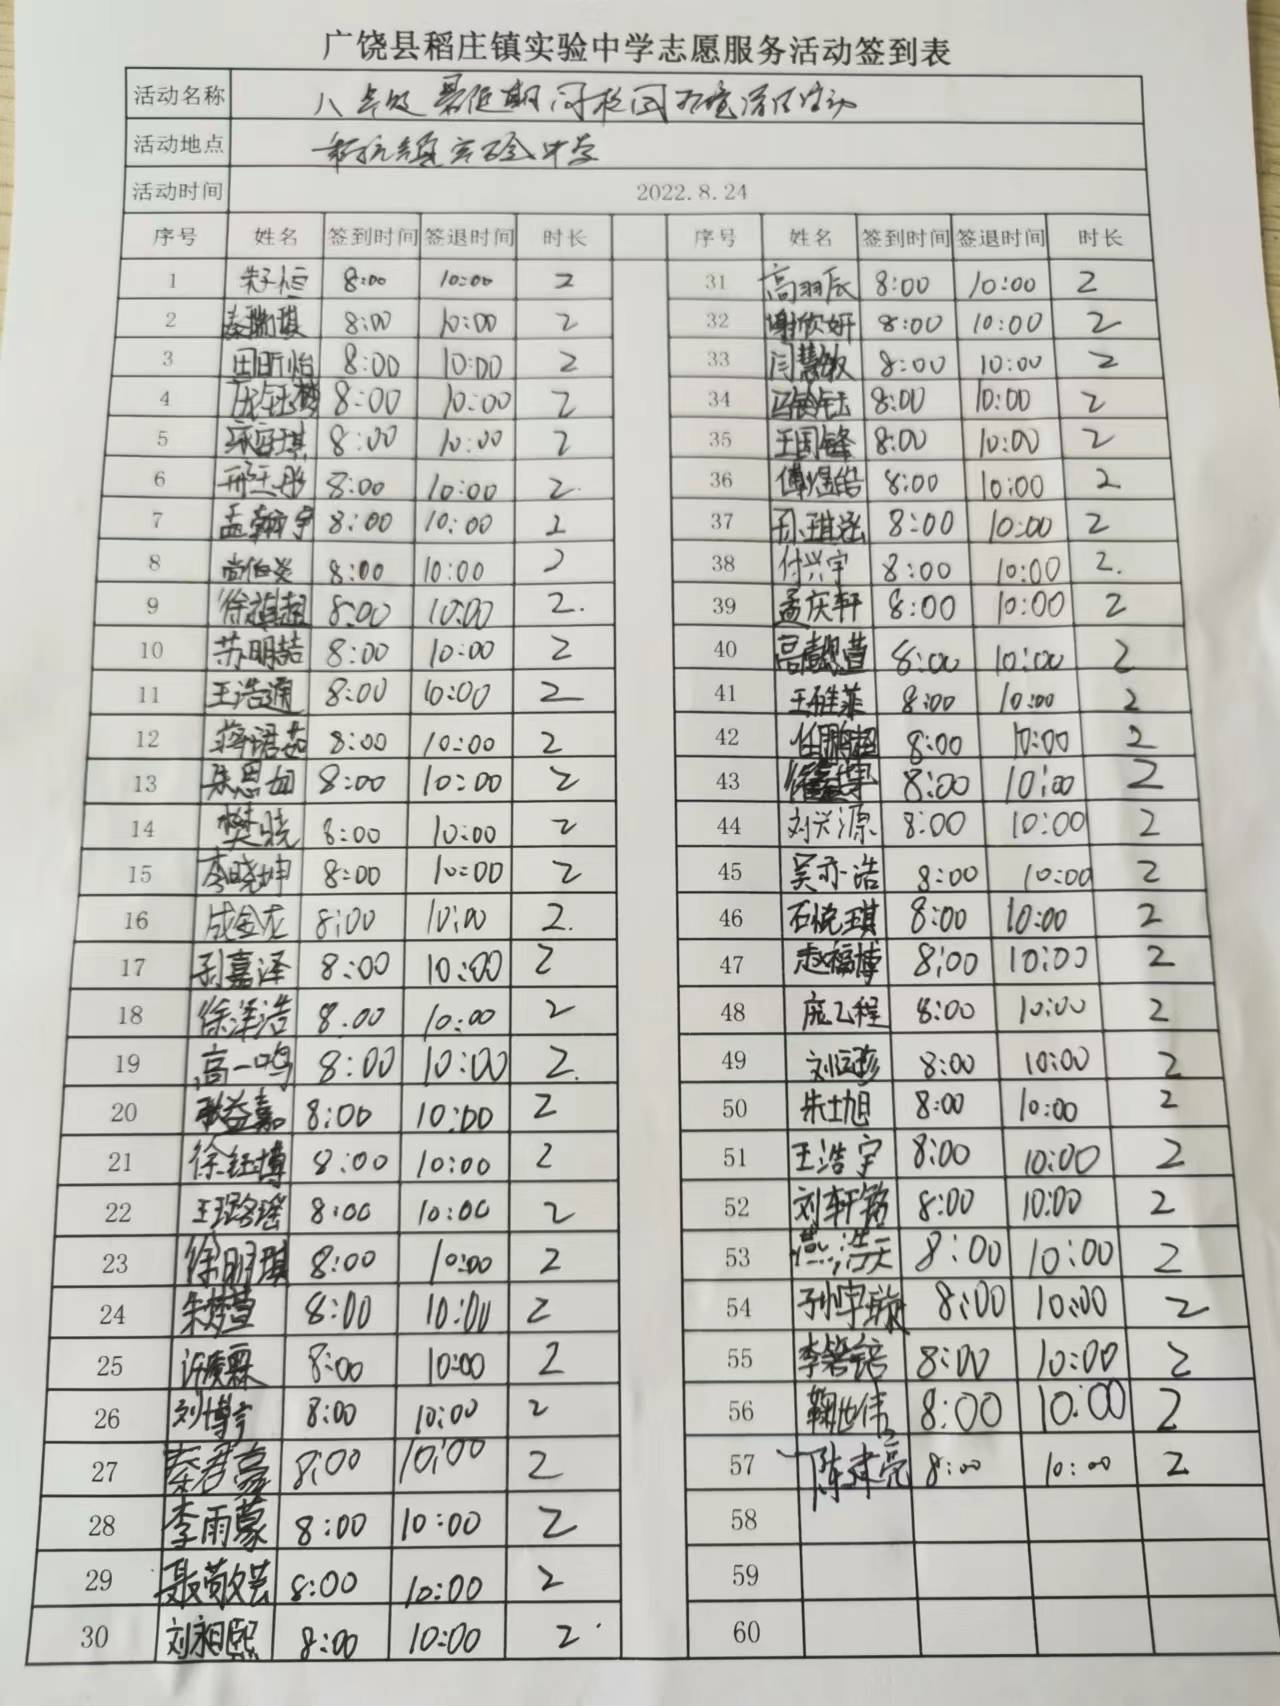 广饶县稻庄镇实验中学志愿服务活动签到表
活动名称 八年级暑假期间校园环境清洁活动
活动地点 稻庄镇实验中学
活动时间 2022.8.24
序号 姓名 签到时间 签退时间 时长 序号 姓名 签到时间 签退时间 时长
1 朱子恒 8:00 10:00 2 31 高羽辰 8:00 10:00 2
2 秦瑞琪 8:00 10:00 2 32 谢欣妍 8:00 10:00 2
3 田昕怡 8:00 10:00 2 33 闫慧敏 8:00 10:00 2
4 8:00 10:00 2 34 8:00 10:00 2
5 8:00 10:00 2 35 王国锋 8:00 10:00 2
6 8:00 10:00 2. 36 傅煜皓 8:00 10:00 2
7 孟翰宇 8:00 10:00 2 37 孙琪泓 8:00 10:00 2
8 尚伯炎 8:00 10:00 2 38 付兴宇 8:00 10:00 2.
9 徐祺超 8:00 10:00 2. 39 孟庆轩 8:00 10:00 2
10 苏明喆 8:00 10:00 2 40 8:00 10:00 2
11 王浩通 8:00 10:00 2 41 8:00 10:00 2
12 蒋语茹 8:00 10:00 2 42 任鹏超 8:00 10:00 2
13 朱思如 8:00 10:00 2 43 8:00 10:00 2
14 樊晓 8:00 10:00 2 44 刘兴源 8:00 10:00 2
15 李晓坤 8:00 10:00 2 45 吴亦浩 8:00 10:00 2
16 成金龙 8:00 10:00 2. 46 石悦琪 8:00 10:00 2
17 孙嘉泽 8:00 10:00 2 47 赵福博 8:00 10:00 2
18 徐洋浩 8.00 10:00 2 48 庞乙程 8:00 10:00 2
19 高一鸣 8:00 10:00 2. 49 8:00 10:00 2
20 耿益嘉 8:00 10:00 2 50 朱士旭 8:00 10:00 2
21 徐钰博 8:00 10:00 2 51 王浩宇 8:00 10:00 2
22 王璐瑶 8:00 10:00 2 52 刘轩铭 8:00 10:00 2
23 徐明琪 8:00 10:00 2 53 燕浩天 8:00 10:00 2
24 朱梦萱 8:00 10:00 2 54 孙宇璇 8:00 10:00 2
25 8:00 10:00 2 55 8:00 10:00 2
26 刘博宇 8:00 10:00 2 56 鞠世伟 8:00 10:00 2
27 秦君豪 8:00 10:00 2 57 陈建亮 8:00 10:00 2
28 李雨蒙 8:00 10:00 2 58
29 聂敬芸 8:00 10:00 2 59
30 刘昶熙 8:00 10:00 2 60